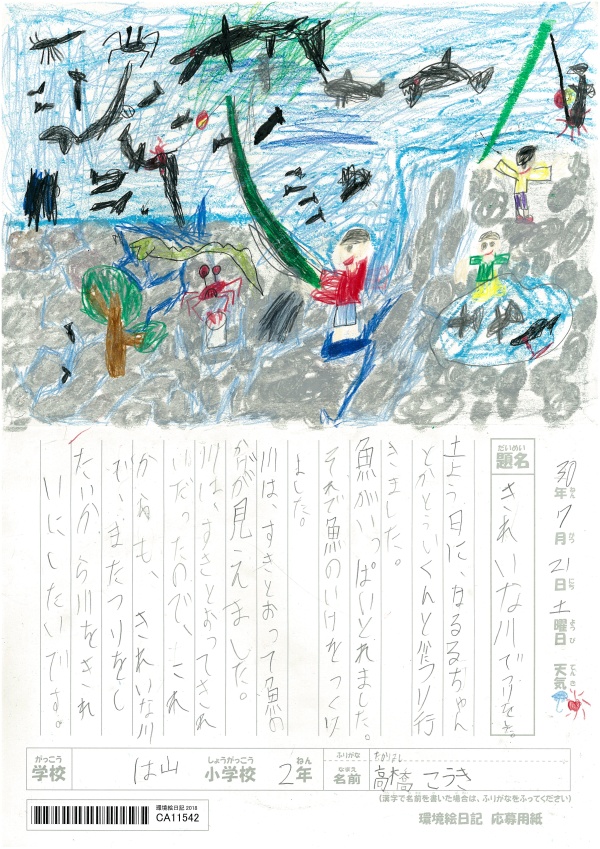 30年ねん 7月がつ 21日にち 土曜日ようび 天気てんき
題名だいめい きれいな川でつりをた。
土よう日に、なるるちゃん
とかとういくんと つり行
きました。
魚がいっぱいとれました。
それで魚のいけをつくり
ました。
川は、すきとおって魚の
かずが見えました。
川は、すきとおってきれ
いだったので、これ
からも、きれいな川
で、またつりをし
たいから川をきれ
いにしたいです。
学校がっこう は山 小学校しょうがっこう 2年ねん
ふりがな たかはし
名前なまえ 高橋 こうき
(漢字で名前を書いた場合は、ふりがなをふってください)
環境絵日記 2018
CA11542
環境絵日記 応募用紙